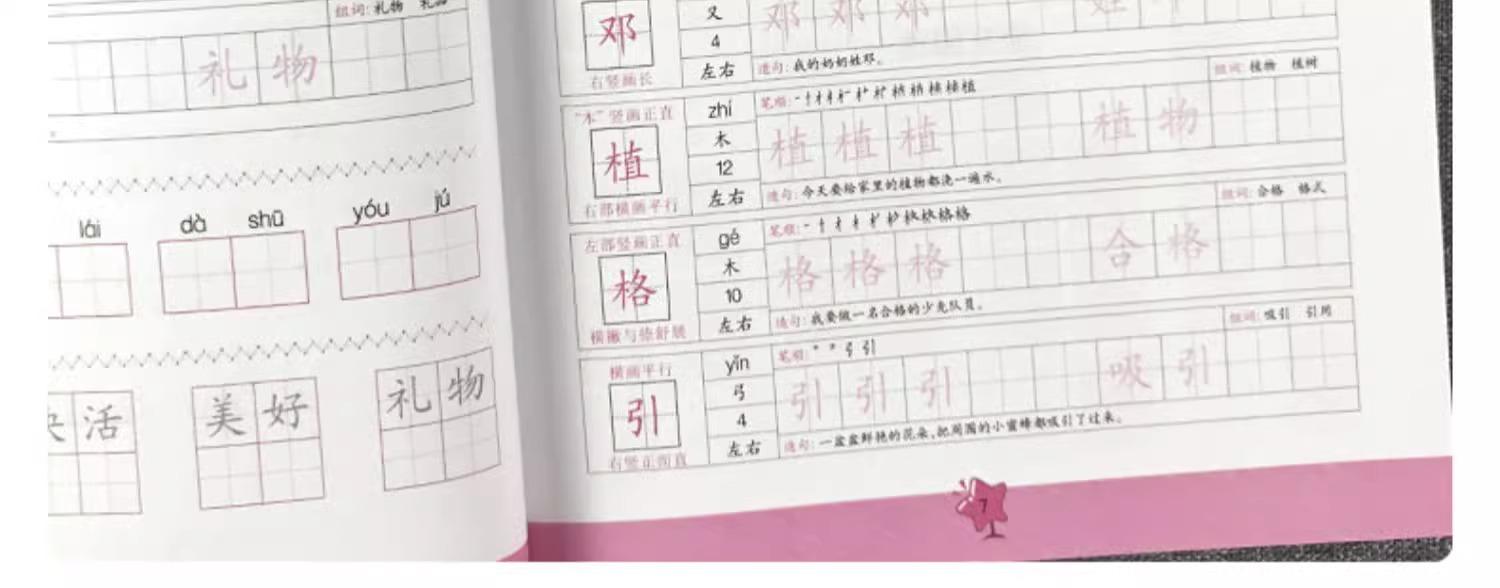 组词: 礼物
礼 物
lái dà shū yóu jú
活 美 好 礼 物
邓
右竖画长
又
4
左右
邓 邓 邓 姓
造句: 我的奶奶姓邓。
"木"竖画正直
植
右部横画平行
zhí
木
12
左右
笔顺:
组词: 植物 植树
植 植 植 植 物
造句: 今天要给家里的植物都浇一遍水。
左部竖画正直
格
横撇与捺舒展
gé
木
10
左右
笔顺:
组词: 合格 格式
格 格 格 合 格
造句: 我要做一名合格的少先队员。
横画平行
引
右竖正而直
yǐn
弓
4
左右
笔顺:
组词: 吸引 引用
引 引 引 吸 引
造句: 一盆盆鲜艳的花朵,把周围的小蜜蜂都吸引了过来。
7